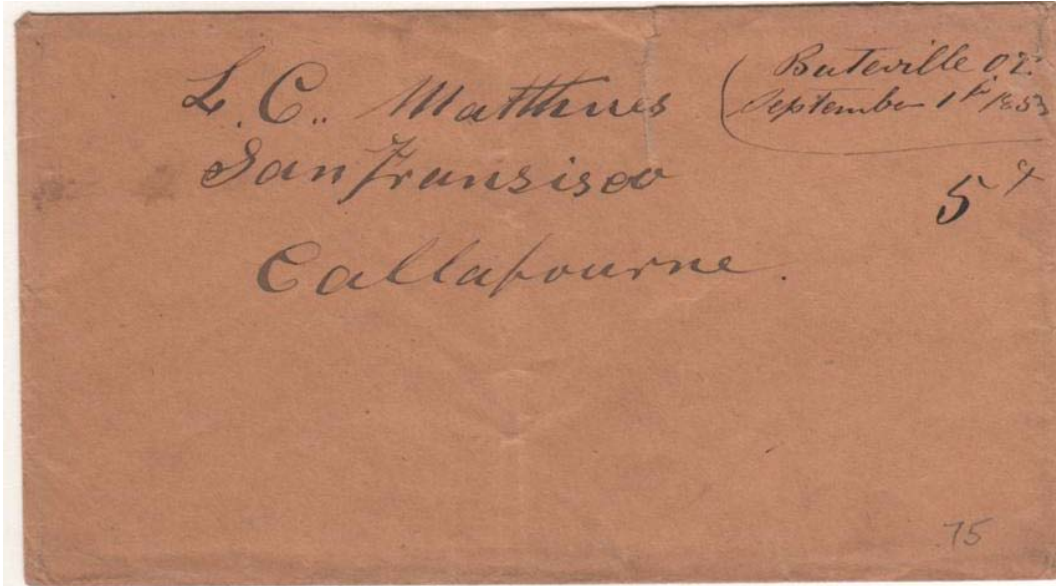 L. C. Matthues
San Fransisco
Callafourne.
Buteville O.T.
September 1st 1853
5
75